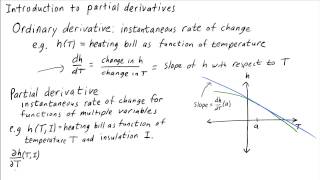 Introduction to partial derivatives
Ordinary derivative: instantaneous rate of change
e.g. h(T) = heating bill as function of temperature
→ dh/dT = change in h / change in T = slope of h with respect to T
Partial derivative
instantaneous rate of change for
functions of multiple variables
e.g. h(T,I) = heating bill as function of
temperature T and insulation I.
∂h/∂T (T,I)
h
Slope = dh/dT (a)
a
T